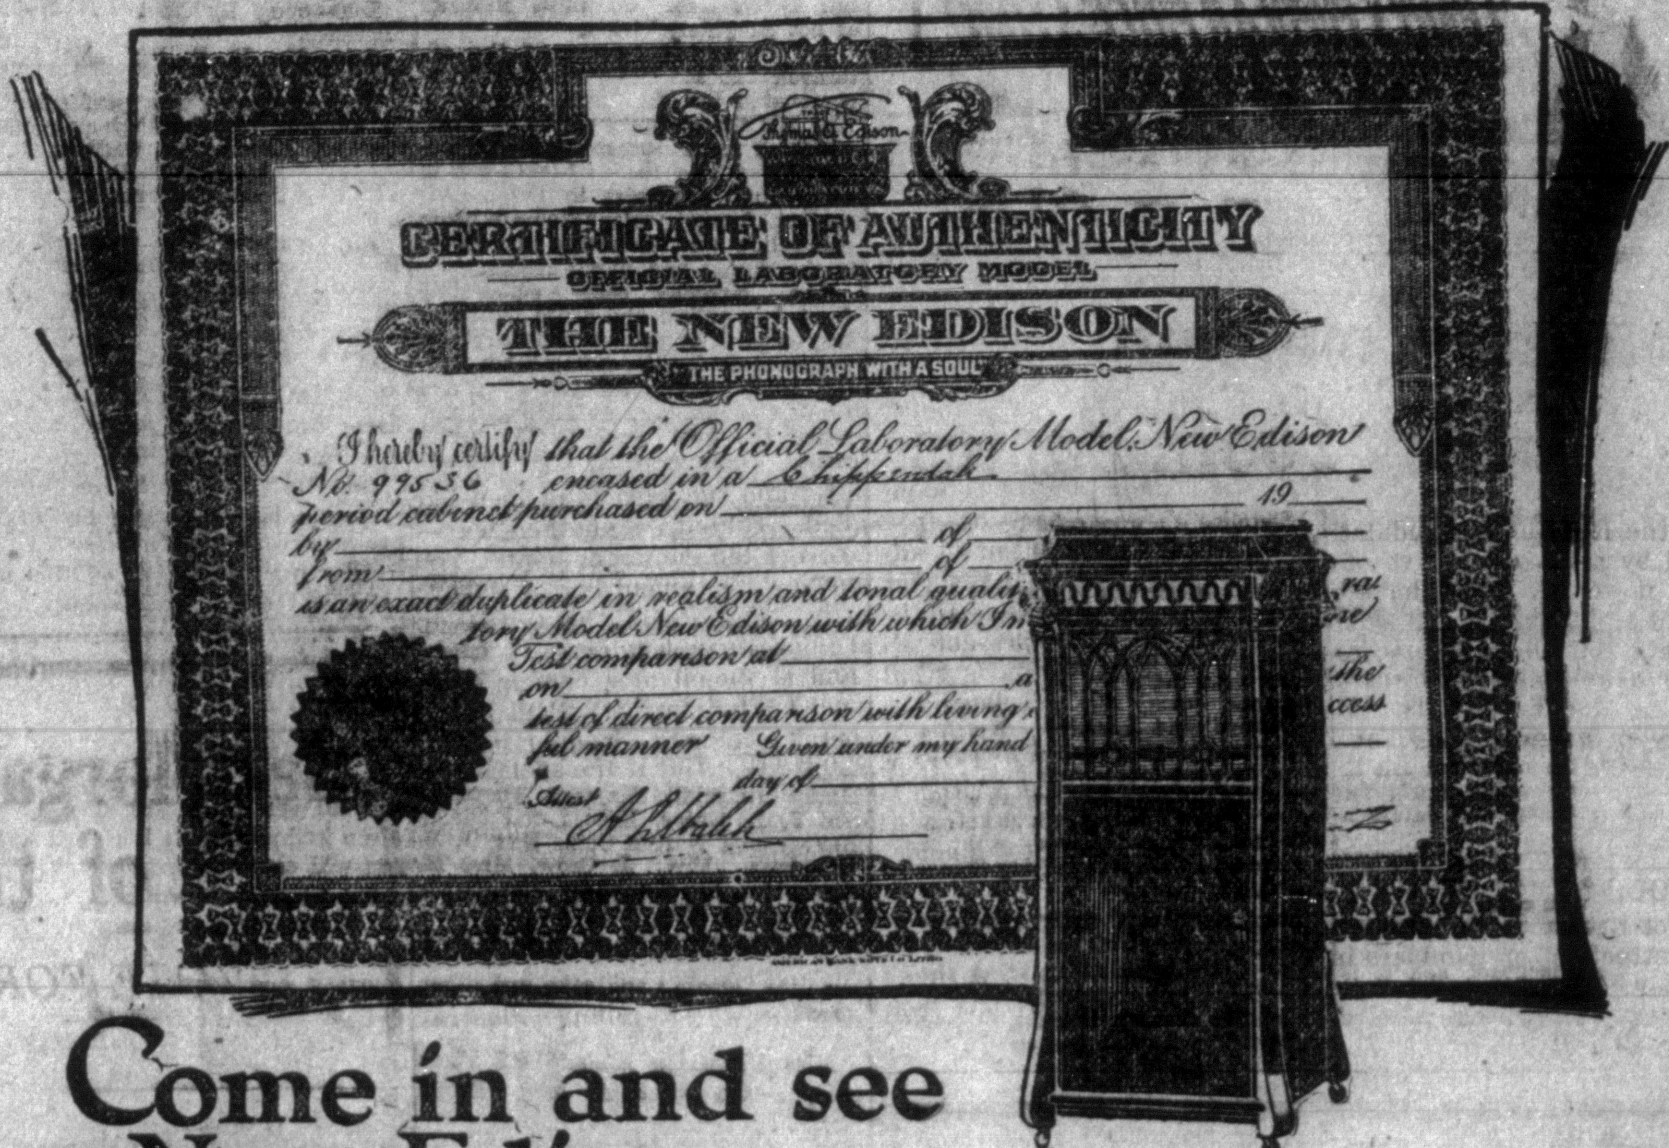 Thomas A Edison
CERTIFICATE OF AUTHENTICITY
OFFICIAL LABORATORY MODEL
THE NEW EDISON
THE PHONOGRAPH WITH A SOUL
I hereby certify that the Official Laboratory Model New Edison
No. 99536 encased in a Chippendale
period cabinet purchased on 19
by of
from of
is an exact duplicate in realism and tonal qualit rat
tory Model New Edison with which I m ne
Test comparison at
on a the
test of direct comparison with living ccess
ful manner Given under my hand
day of
Attest
AMERICAN BANK NOTE CO.
Come in and see